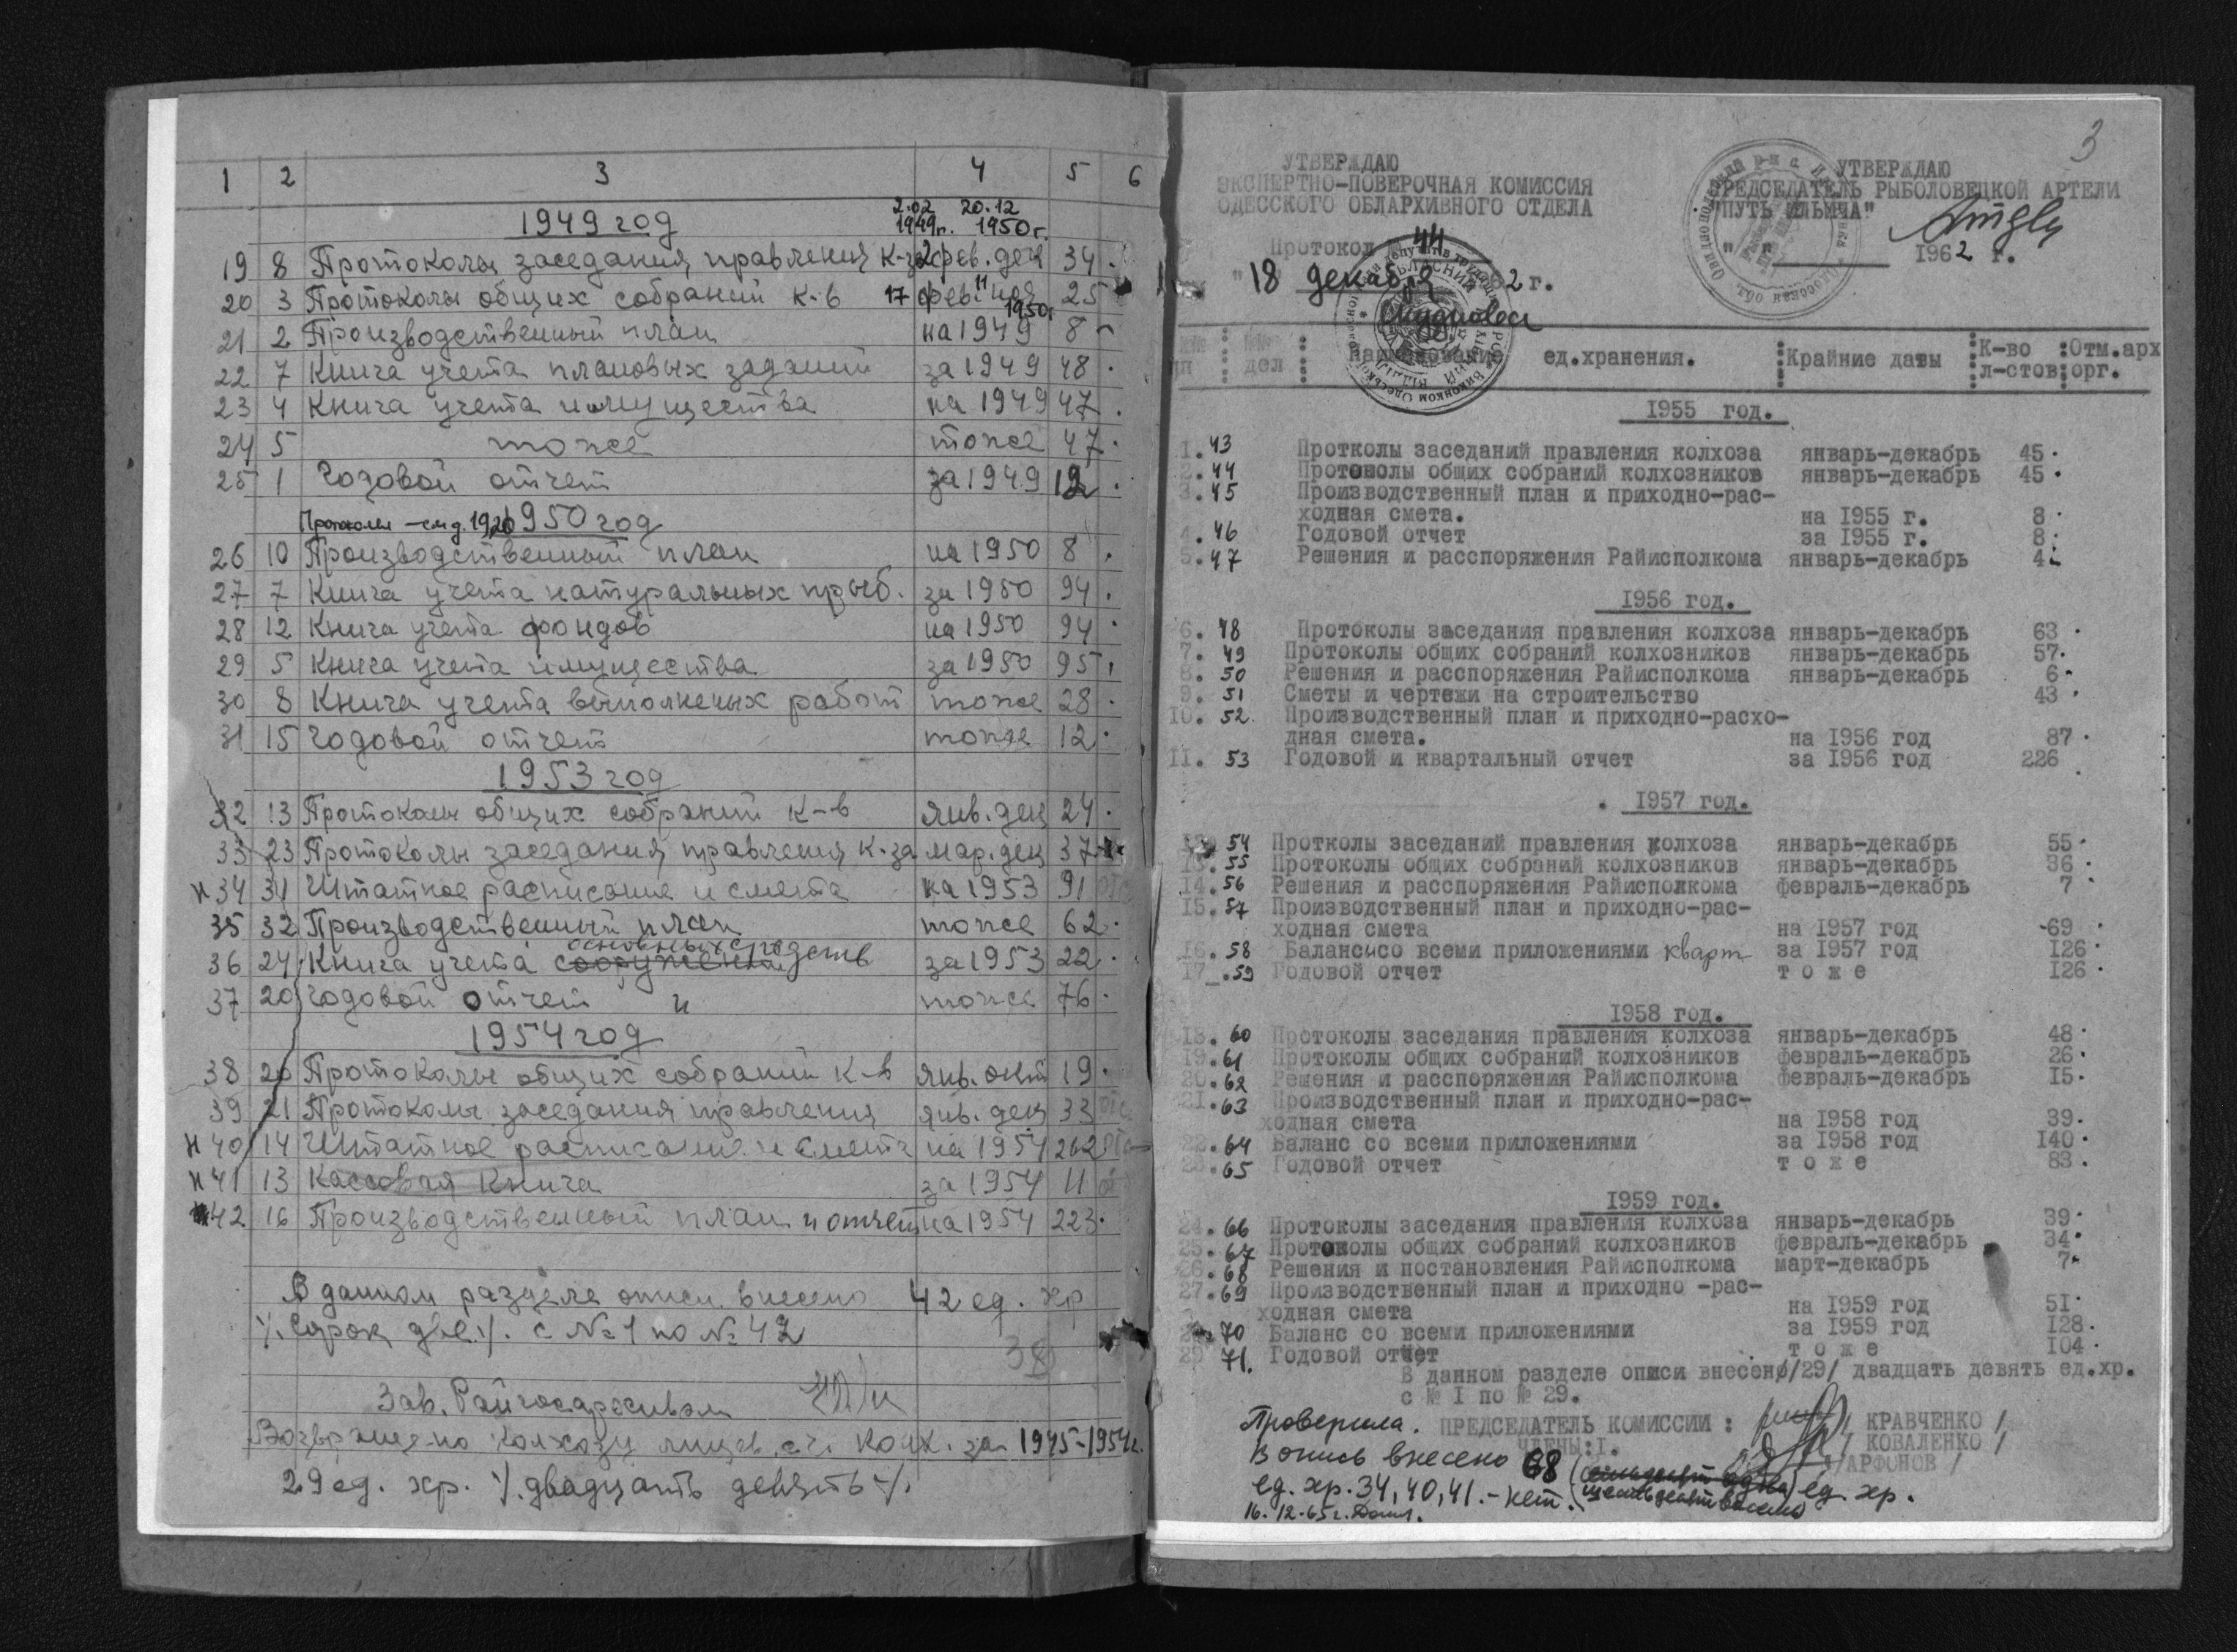 1 2 3 4 5 6
1949 год 2.02 1949г. 20.12 1950г.
19 8 Протоколы заседания правления к-за 2 фев. дек 34
20 3 Протоколы общих собраний к-в 17 фев. 11 ноя 1950г 25
21 2 Производственный план на 1949 8
22 7 Книга учета плановых заданий за 1949 48
23 4 Книга учета имущества на 1949 47
24 5 тоже тоже 47
25 1 Годовой отчет за 1949 12
Протоколы – см д. 19, 20 1950 год
26 10 Производственный план на 1950 8
27 7 Книга учета натуральных прыб. за 1950 94
28 12 Книга учета фондов на 1950 94
29 5 Книга учета имущества за 1950 95
30 8 Книга учета выполненых работ тоже 28
31 15 Годовой отчет тоже 12
1953 год
32 13 Протоколы общих собраний к-в янв. дек 24
33 23 Протоколы заседания правления к-за мар. дек 37
н 34 31 Штатное расписание и смета на 1953 91
35 32 Производственный план тоже 62
36 24 Книга учета сооружения основных средств за 1953 22
37 20 Годовой отчет и тоже 76
1954 год
38 20 Протоколы общих собраний к-в янв. окт 19
39 21 Протоколы заседания правления янв. дек 33
н 40 14 Штатное расписание и смета на 1954 262
н 41 13 Кассовая книга за 1954 11
42 16 Производственный план и отчет на 1954 223
В данном разделе описи внесено 42 ед. хр
/. Сорок две ./. с № 1 по № 42
38
Зав. Райгосархивом
Возвращено колхозу лицев. сч. колх. за 1945-1954г.
29 ед. хр. /. двадцать девять ./.
3
УТВЕРЖДАЮ
ЭКСПЕРТНО-ПОВЕРОЧНАЯ КОМИССИЯ
ОДЕССКОГО ОБЛАРХИВНОГО ОТДЕЛА
Протокол 44
"18 декабря 62 г.
УТВЕРЖДАЮ
ПРЕДСЕДАТЕЛЬ РЫБОЛОВЕЦКОЙ АРТЕЛИ
"ПУТЬ ИЛЬИЧА"
" " 1962 г.
№№ пп №№ дел Наименование ед.хранения. Крайние даты К-во л-стов Отм.арх орг.
1955 год.
1. 43 Протколы заседаний правления колхоза январь-декабрь 45
2. 44 Протоколы общих собраний колхозников январь-декабрь 45
3. 45 Производственный план и приходно-рас-
ходная смета. на 1955 г. 8
4. 46 Годовой отчет за 1955 г. 8
5. 47 Решения и расспоряжения Райисполкома январь-декабрь 4
1956 год.
6. 48 Протоколы заседания правления колхоза январь-декабрь 63
7. 49 Протоколы общих собраний колхозников январь-декабрь 57
8. 50 Решения и расспоряжения Райисполкома январь-декабрь 6
9. 51 Сметы и чертежи на строительство 43
10. 52 Производственный план и приходно-расхо-
дная смета. на 1956 год 87
11. 53 Годовой и квартальный отчет за 1956 год 226
1957 год.
12. 54 Протколы заседаний правления колхоза январь-декабрь 55
13. 55 Протоколы общих собраний колхозников январь-декабрь 36
14. 56 Решения и расспоряжения Райисполкома февраль-декабрь 7
15. 57 Производственный план и приходно-рас-
ходная смета на 1957 год -69
16. 58 Балансысо всеми приложениями кварт за 1957 год 126
17. 59 Годовой отчет т о ж е 126
1958 год.
18. 60 Протоколы заседания правления колхоза январь-декабрь 48
19. 61 Протоколы общих собраний колхозников февраль-декабрь 26
20. 62 Решения и расспоряжения Райисполкома февраль-декабрь 15
21. 63 Производственный план и приходно-рас-
ходная смета на 1958 год 39
22. 64 Баланс со всеми приложениями за 1958 год 140
23. 65 Годовой отчет т о ж е 83
1959 год.
24. 66 Протоколы заседания правления колхоза январь-декабрь 39
25. 67 Протоколы общих собраний колхозников февраль-декабрь 34
26. 68 Решения и постановления Райисполкома март-декабрь 7
27. 69 Производственный план и приходно -рас-
ходная смета на 1959 год 51
28. 70 Баланс со всеми приложениями за 1959 год 128
29. 71. Годовой отчет т о ж е 104
В данном разделе описи внесено/29/ двадцать девять ед.хр.
с № 1 по № 29.
Проверила. ПРЕДСЕДАТЕЛЬ КОМИССИИ : / КРАВЧЕНКО /
ЧЛЕНЫ:1. / КОВАЛЕНКО /
В опись внесено 68 (шестьдесят восемь) ед. хр. /АРФОНОВ /
ед. хр. 34, 40, 41. – нет.
16.12.65г.